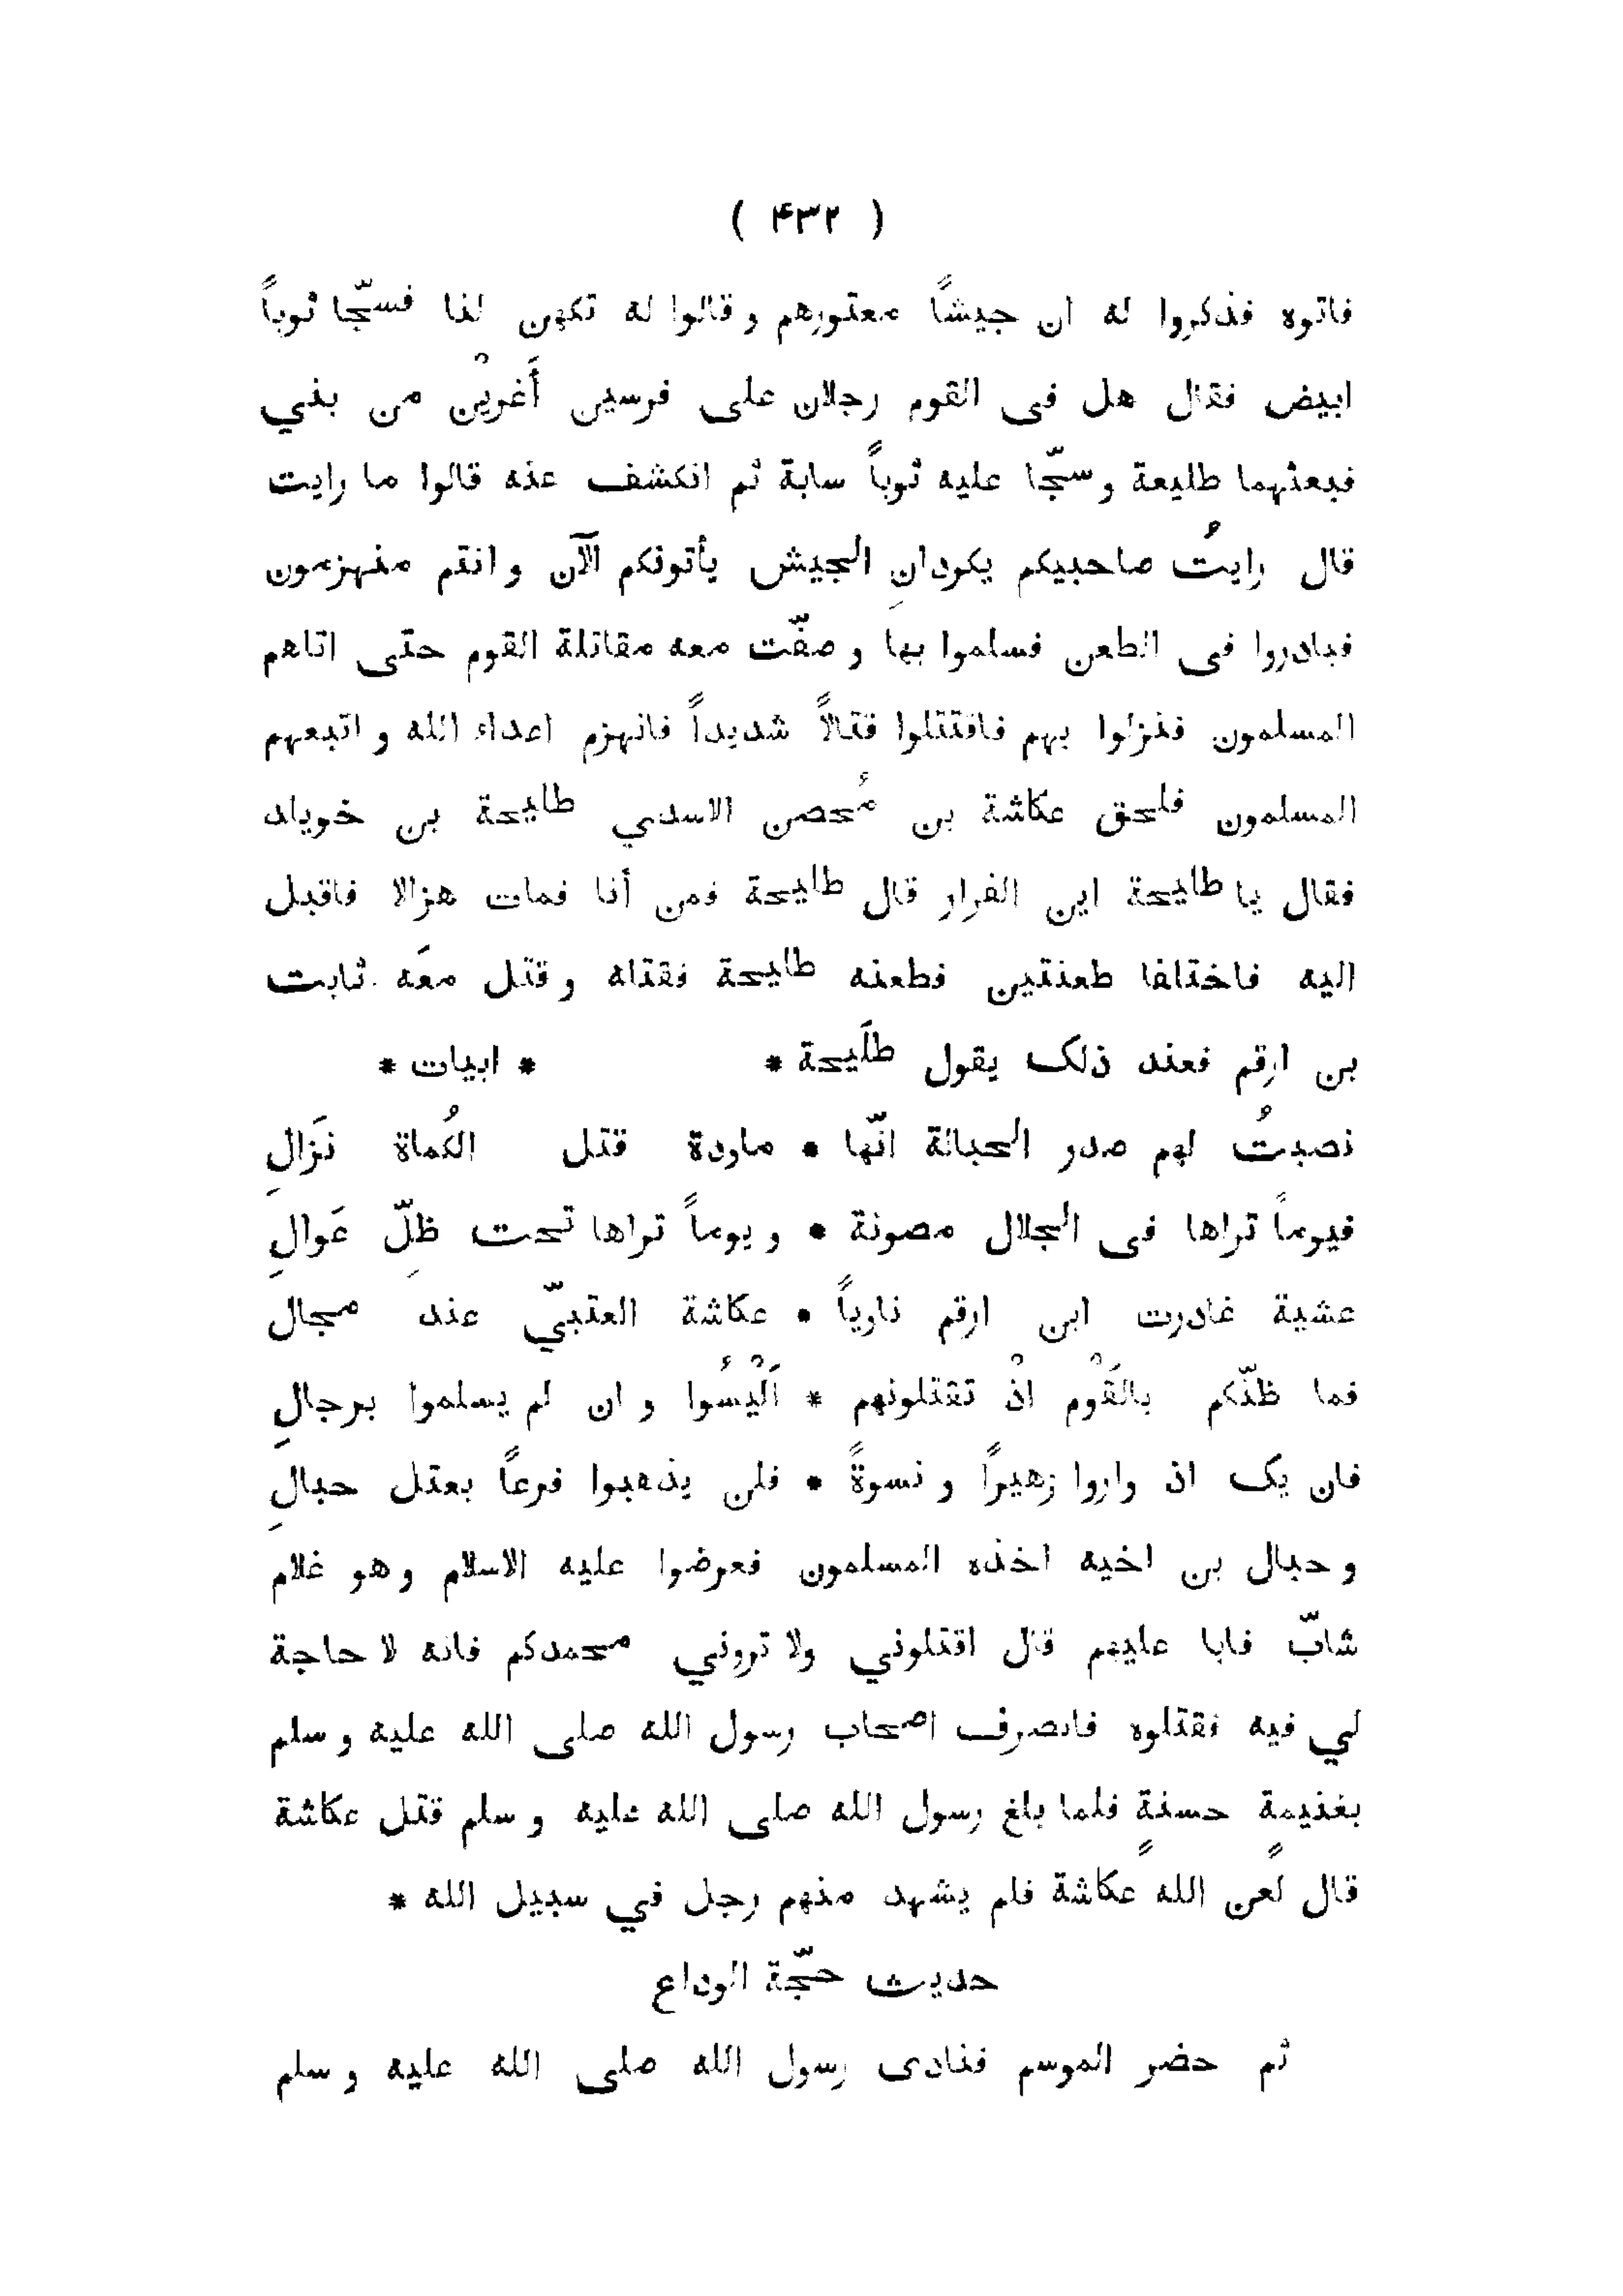 ( ۴۳۲ )
فاتوه فذكروا له ان جيشاً معتورهم و قالوا له تكهن لنا فسجّا ثوباً
ابيض فقال هل فى القوم رجلان على فرسين أَغريْن من بني
فبعثهما طليعة و سجّا عليه ثوباً سابة ثم انكشف عنه قالوا ما رايت
قال رايتُ صاحبيكم يكودانِ الجيش يأتونكم الآن و انتم منهزمون
فبادروا فى الطعن فسلموا بها و صفّت معه مقاتلة القوم حتى اتاهم
المسلمون فنزلوا بهم فاقتتلوا قتالاً شديداً فانهزم اعداء الله و اتبعهم
المسلمون فلحق عكاشة بن مُحصن الاسدي طليحة بن خويلد
فقال يا طليحة اين الفرار قال طليحة فمن أنا فمات هزالا فاقبل
اليه فاختلفا طعنتين فطعنه طليحة فقتله و قتل معَه ثابت
بن ارقم فعند ذلك يقول طلَيحة * * ابيات *
نصبتُ لهم صدر الحبالة انّها * ماودة قتل الكُماة نَزالِ
فيوماً تراها فى الجلال مصونة * و يوماً تراها تحت ظِلّ عَوالِ
عشية غادرت ابن ارقم ناوياً * عكاشة العتبيّ عند مجال
فما ظنّكم بالقَوْم اذْ تقتلونهم * اَلْيسُوا و ان لم يسلموا برجالِ
فان يک اذ واروا زهيراً و نسوةً * فلن يذهبوا فرعاً بعتل حبالِ
و حبال بن اخيه اخذه المسلمون فعرضوا عليه الاسلام و هو غلام
شابّ فابا عليهم قال اقتلوني ولا تروني محمدكم فانه لا حاجة
لي فيه فقتلوه فانصرف اصحاب رسول الله صلى الله عليه و سلم
بغنيمةٍ حسنةٍ فلما بلغ رسول الله صلى الله عليه و سلم قتل عكاشة
قال لعن الله عكاشة فلم يشهد منهم رجل في سبيل الله *
حديث حجّة الوداع
ثم حضر الموسم فنادى رسول الله صلى الله عليه و سلم